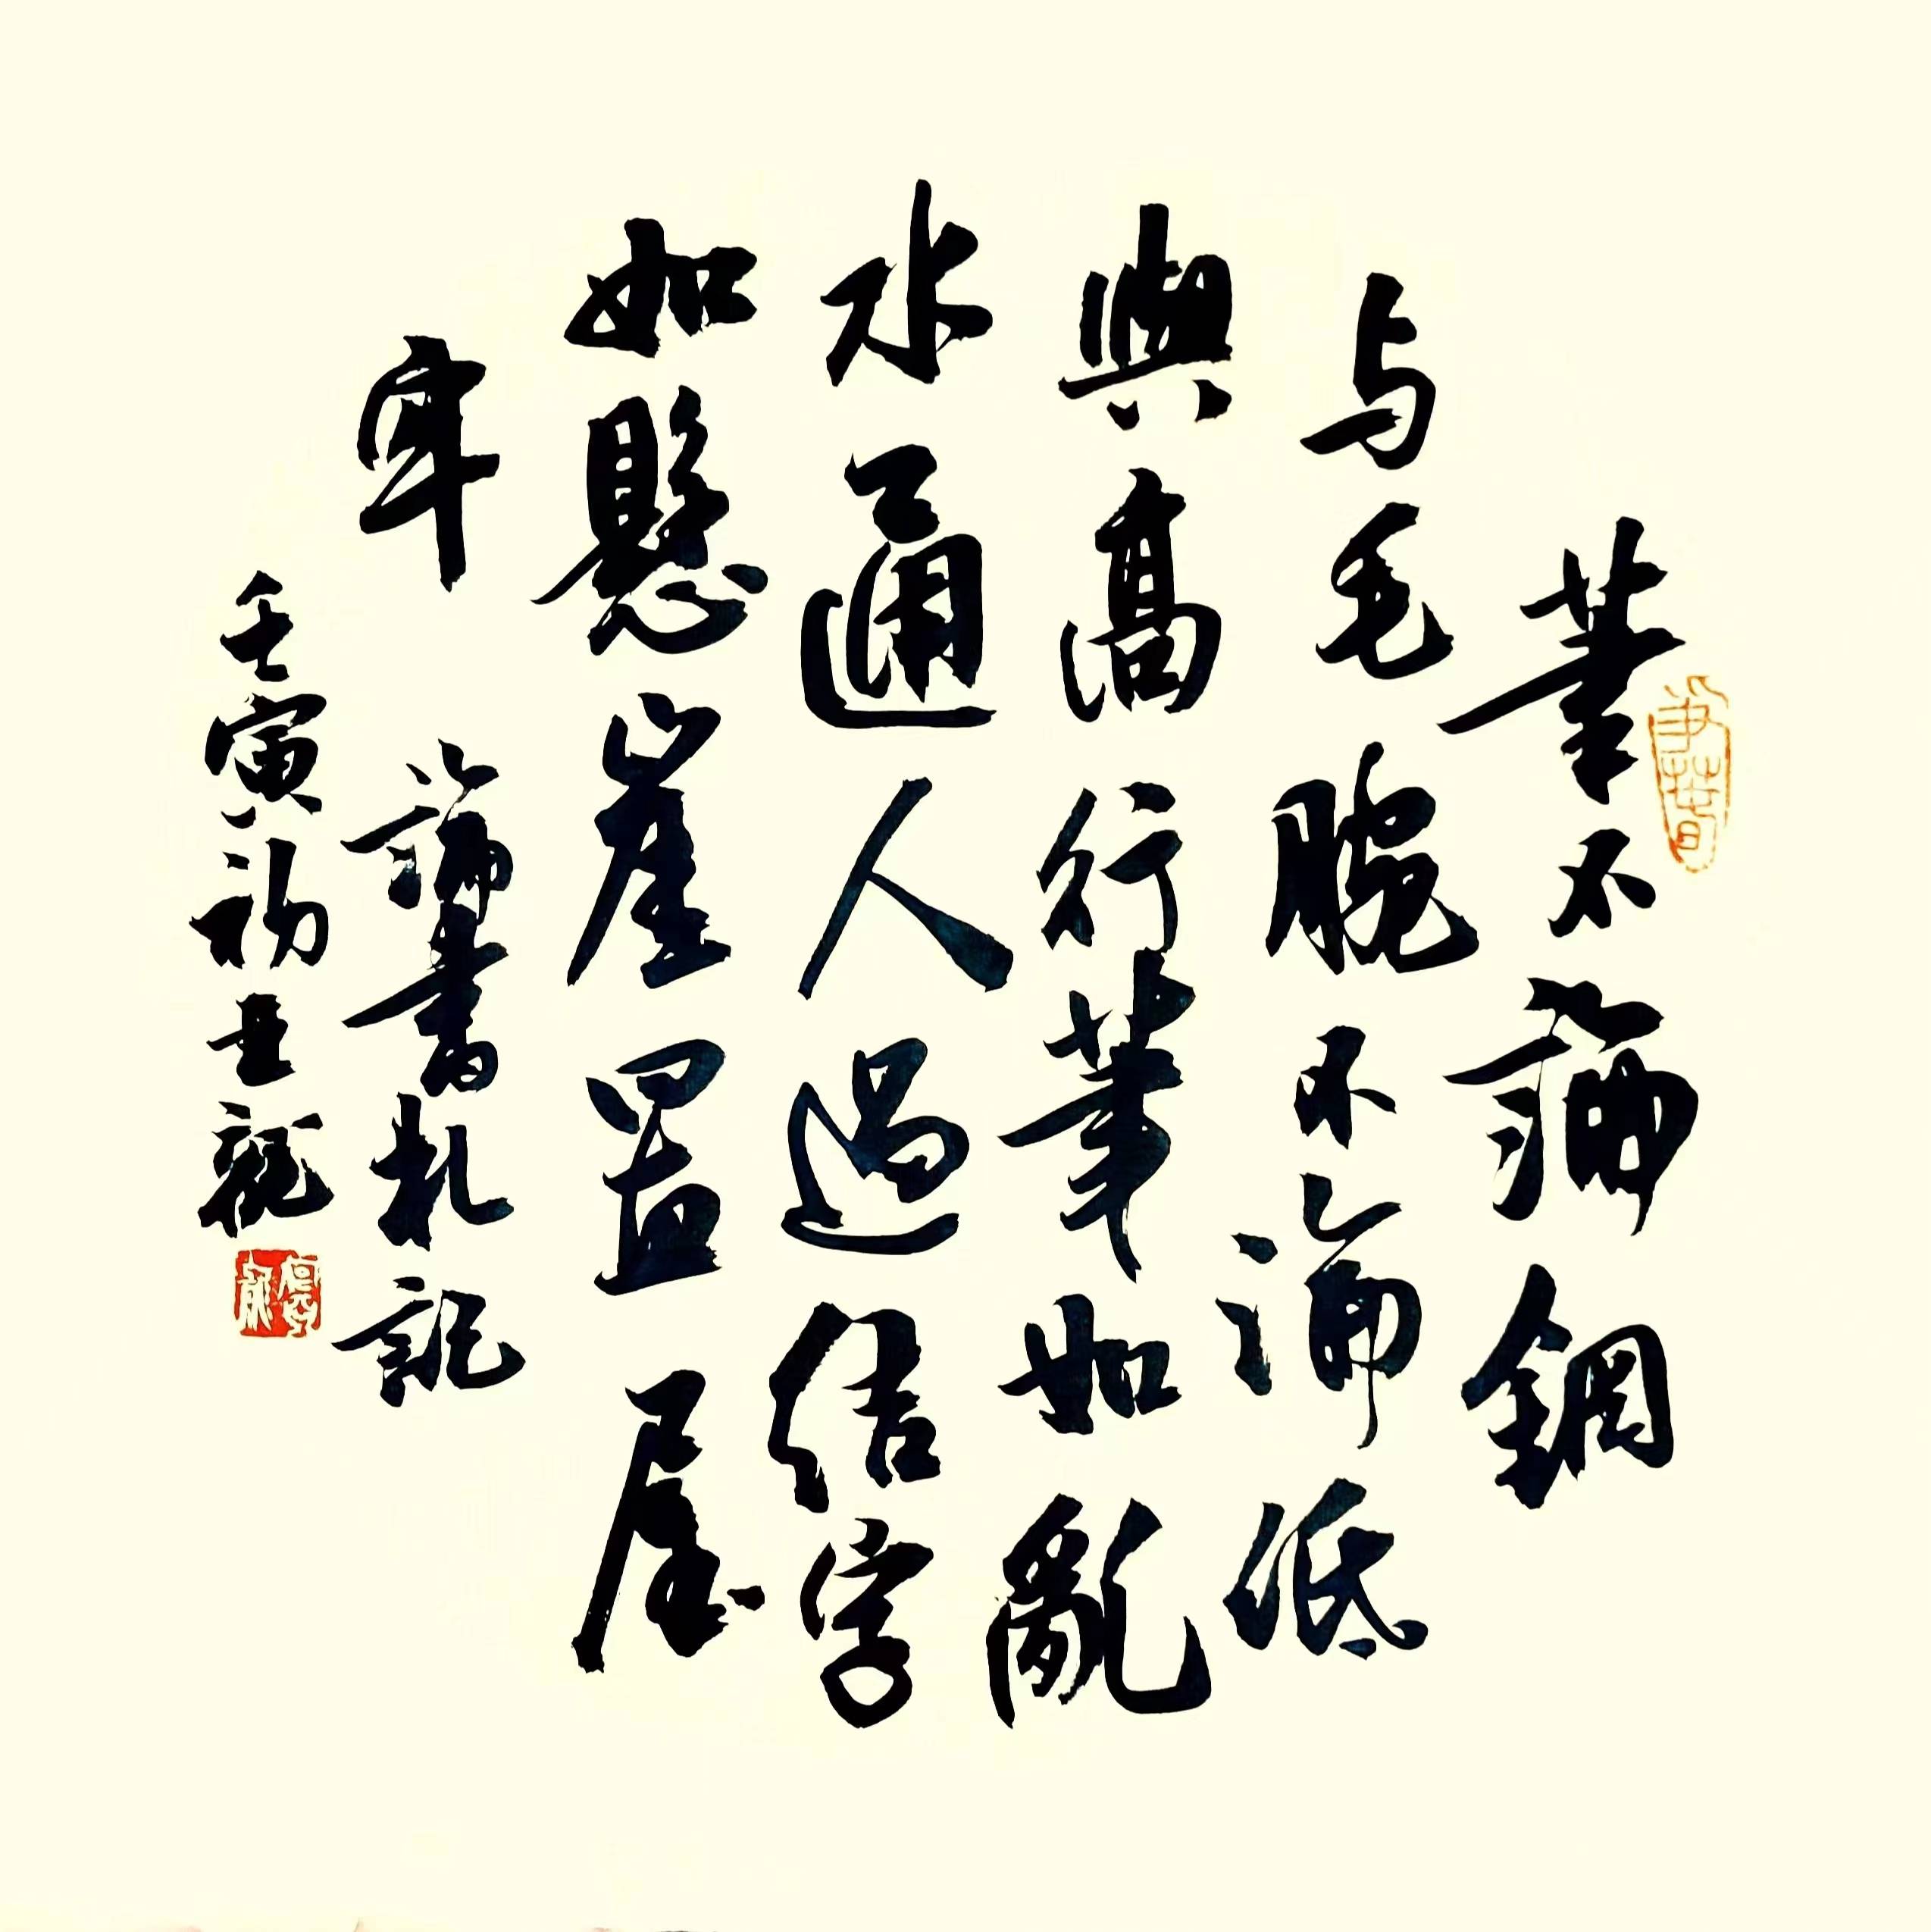 筆不論鋼
与毛腕不論低
與高行筆如亂
水通人過結字
如懸崖置屋
牢
論書札記
壬寅初